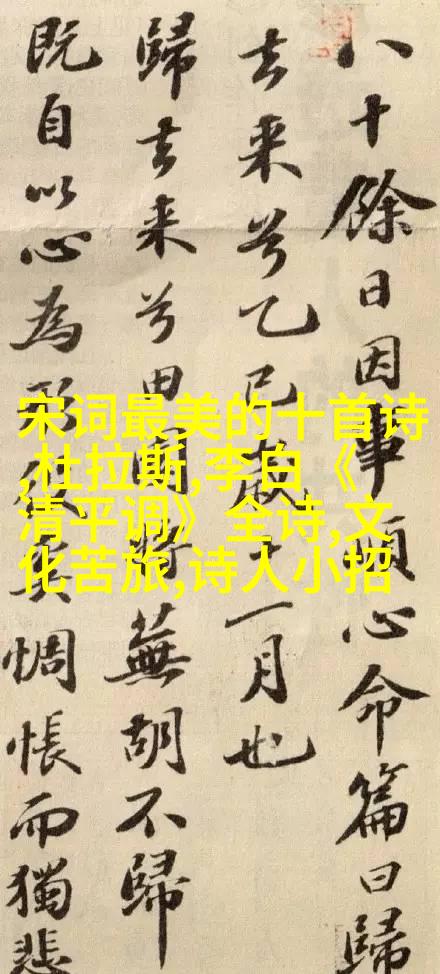 八十餘日因事順心命篇曰歸
去来兮乙巳歲十一月也
歸去来兮田園將蕪胡不歸
既自以心為形役奚惆悵而獨悲
宋词最美的十首诗
,杜拉斯,李白《
清平调》全诗,文
化苦旅,诗人小招